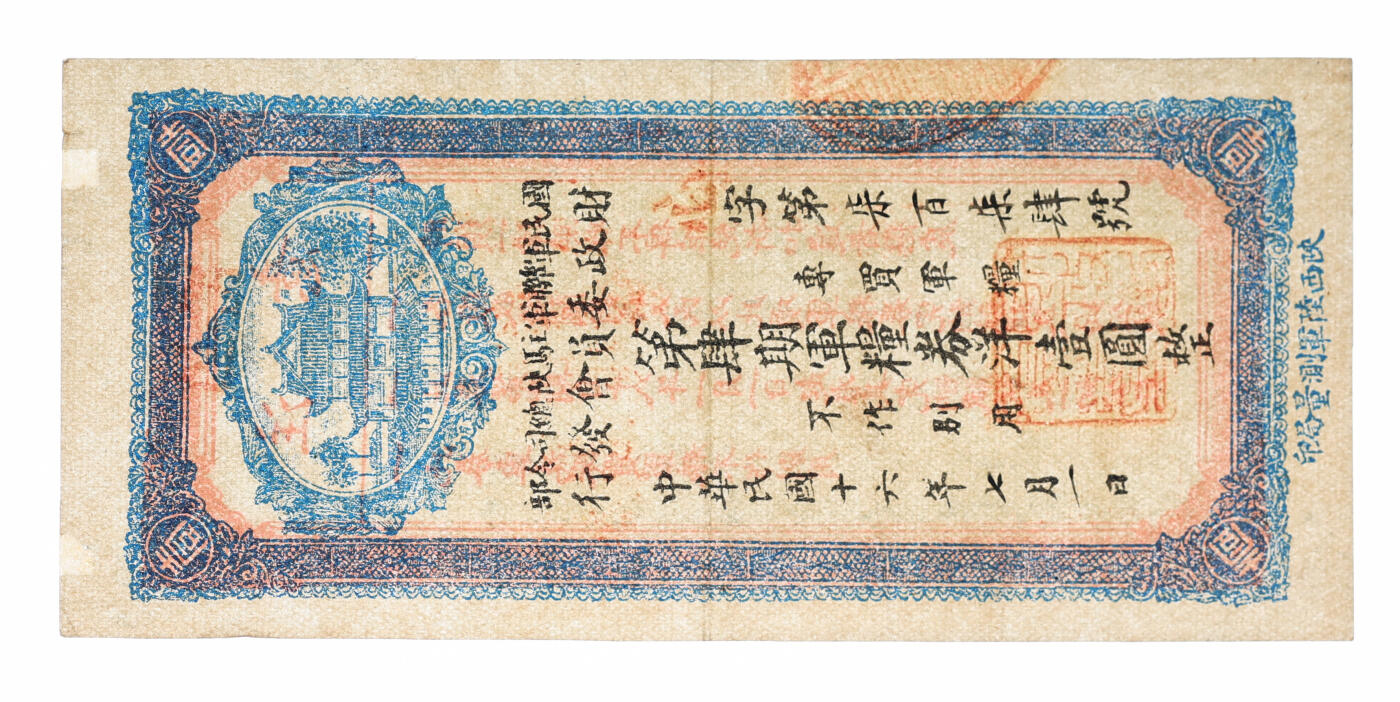 壹圓
壹圓
國民軍聯軍駐陝總司令部
財政委員會發行
字第柒百柒肆號
專買軍糧
第肆期軍糧券洋壹圓整
不作別用
中華民國十六年七月一日
壹圓
壹圓
陝西陸軍測量局印